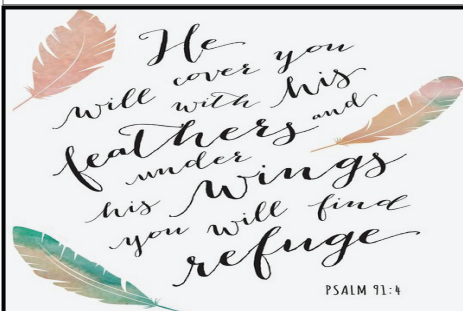 He
will cover you
with his
feathers and
under
his wings
you will find
refuge
PSALM 91:4